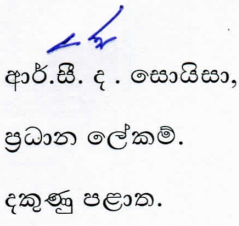 ආර්.සී. ද . සොයිසා,
ප්‍රධාන ලේකම්.
දකුණු පළාත.